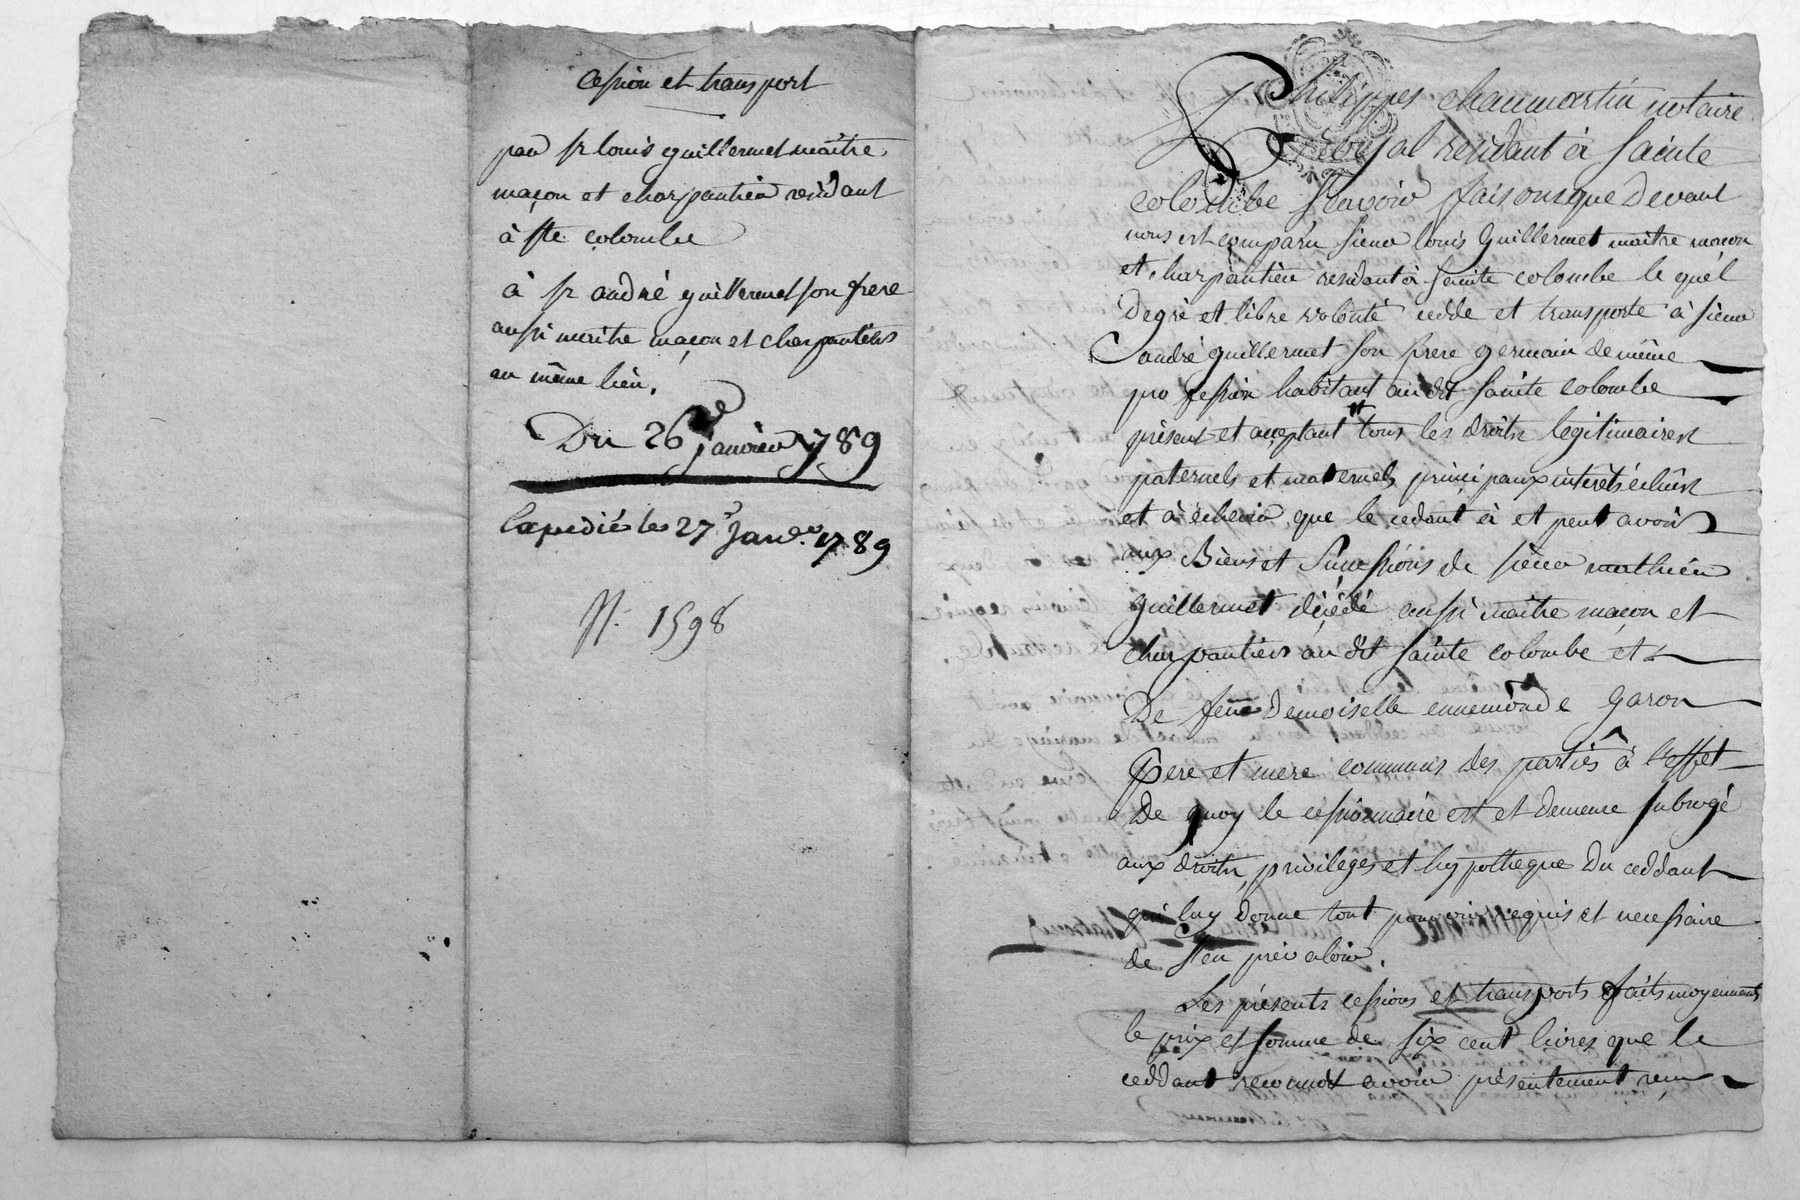 cession et transport
par Sr louis guillermet maitre
maçon et charpantier residant
à Ste colombe
à Sr andré guillermet son frere
aussi maitre maçon et charpantiers
au même lieu.
Du 26e janvier 1789
Expedié les 27e Janvr 1789
N. 1598
Philippes chaumartin notaire
royal residant à Sainte
colombe Sçavoir faisons que devant
nous est comparu Sieur louis Guillermet maitre macon
et charpantier residant à Sainte colombe le quel
De gré et libre volonté cedde et transporte à Sieur
andré guillermet son frere germain de même
profession habitant audit Sainte colombe
présent et acceptant tous les droits legitimaires
paternels et maternels principaux interêts échus
et à écheoir que le cedant à et peut avoir
aux Biens et Successions de Sieur mathieu
guillermet décédé aussi maitre maçon et
charpantiers au dit Sainte colombe et
De feue Demoiselle ennemonde Garon
pere et mere communs des parties à l'effet
De quoy le cessionnaire est et demeure subrogé
aux droits, privileges et hypotheque Du ceddant
qui luy donne tout pouvoir requis et necessaire
de S'en prévaloir.
Les présents cessions et transports faits moyennants
le prix et somme de six cent livres que le
ceddant reconnoit avoir présentement reçu